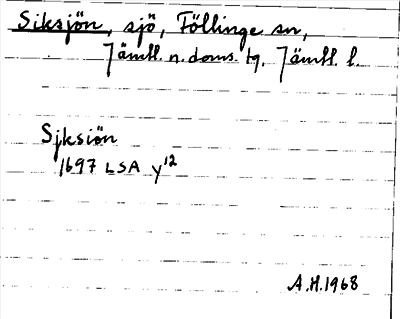 Siksjön, sjö, Föllinge sn,
Jämtl. n. doms. tg. Jämtl. l.
Sjksiön
1697 LSA y12
A.H. 1968